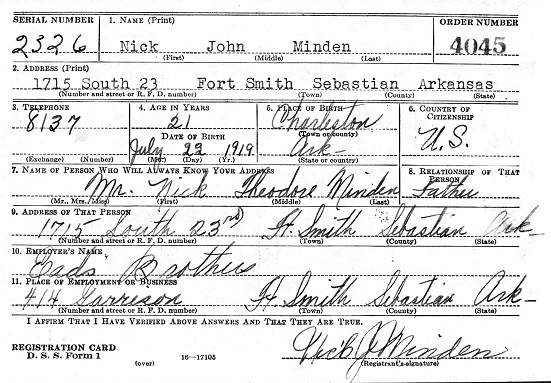 SERIAL NUMBER 1. NAME (Print) ORDER NUMBER
2326 Nick John Minden 4045
(First) (Middle) (Last)
2. ADDRESS (Print)
1715 South 23 Fort Smith Sebastian Arkansas
(Number and street or R. F. D. number) (Town) (County) (State)
3. TELEPHONE 4. AGE IN YEARS 5. PLACE OF BIRTH 6. COUNTRY OF CITIZENSHIP
8137 21 Charleston U.S.
DATE OF BIRTH (Town or county)
July 22 1919 Ark-
(Exchange) (Number) (Mo.) (Day) (Yr.) (State or country)
7. NAME OF PERSON WHO WILL ALWAYS KNOW YOUR ADDRESS 8. RELATIONSHIP OF THAT PERSON
Mr. Nick Theodose Minden Father
(Mr., Mrs., Miss) (First) (Middle) (Last)
9. ADDRESS OF THAT PERSON
1715 South 23rd Ft. Smith Sebastian Ark-
(Number and street or R. F. D. number) (Town) (County) (State)
10. EMPLOYER'S NAME
Eads Brothers
11. PLACE OF EMPLOYMENT OR BUSINESS
414 Garrison Ft Smith Sebastian Ark-
(Number and street or R. F. D. number) (Town) (County) (State)
I AFFIRM THAT I HAVE VERIFIED ABOVE ANSWERS AND THAT THEY ARE TRUE.
REGISTRATION CARD
D. S. S. Form 1 (over) 16-17105 Nick J Minden
(Registrant's signature)